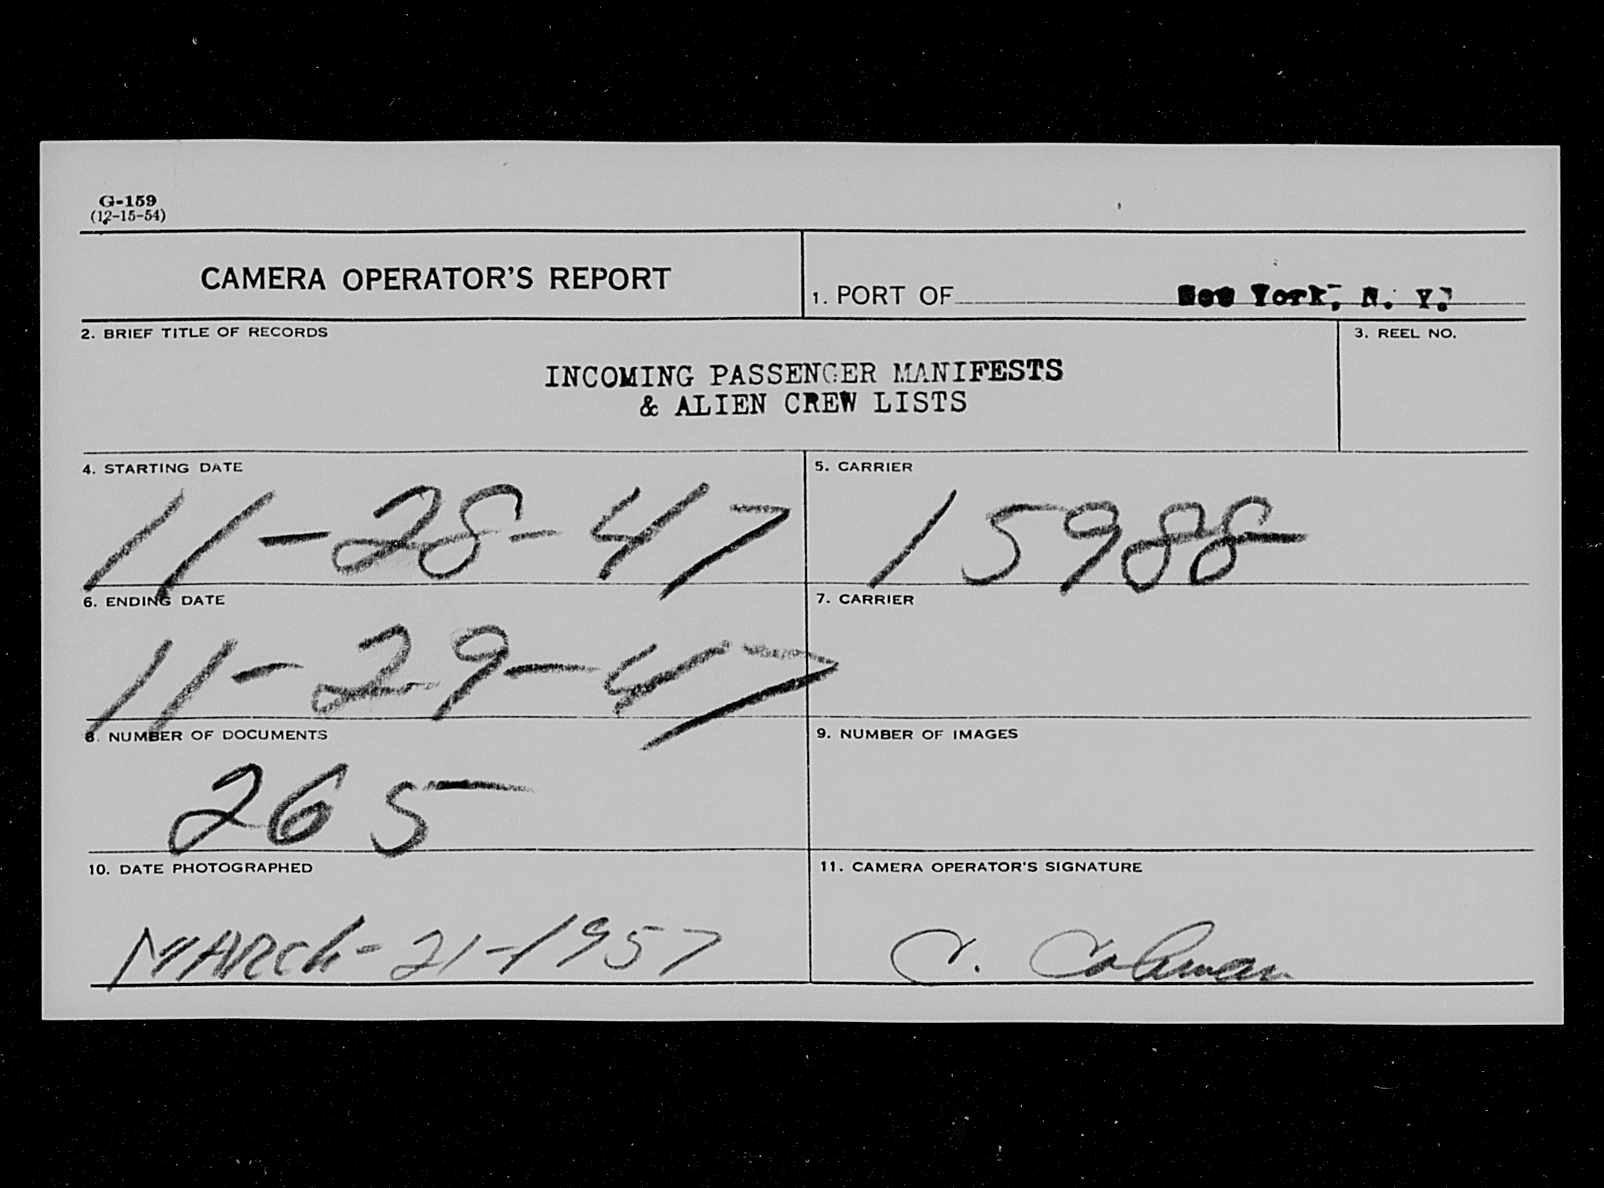 G-159
(12-15-54)
CAMERA OPERATOR'S REPORT
1. PORT OF New York, N. Y.
2. BRIEF TITLE OF RECORDS
3. REEL NO.
INCOMING PASSENGER MANIFESTS
& ALIEN CREW LISTS
4. STARTING DATE
11-28-47
5. CARRIER
15988
6. ENDING DATE
11-29-47
7. CARRIER
8. NUMBER OF DOCUMENTS
265
9. NUMBER OF IMAGES
10. DATE PHOTOGRAPHED
MARCH-21-1957
11. CAMERA OPERATOR'S SIGNATURE
C. Colman